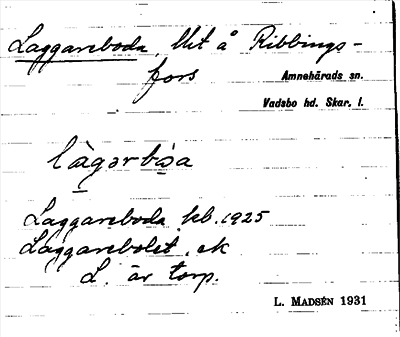 Laggareboda, lht å Ribbings-
fors
Amnehärads sn.
Vadsbo hd. Skar. l.
làgərbòa
Laggareboda kb. 1925
Laggarebolet, ek
L. är torp.
L. MADSÉN 1931